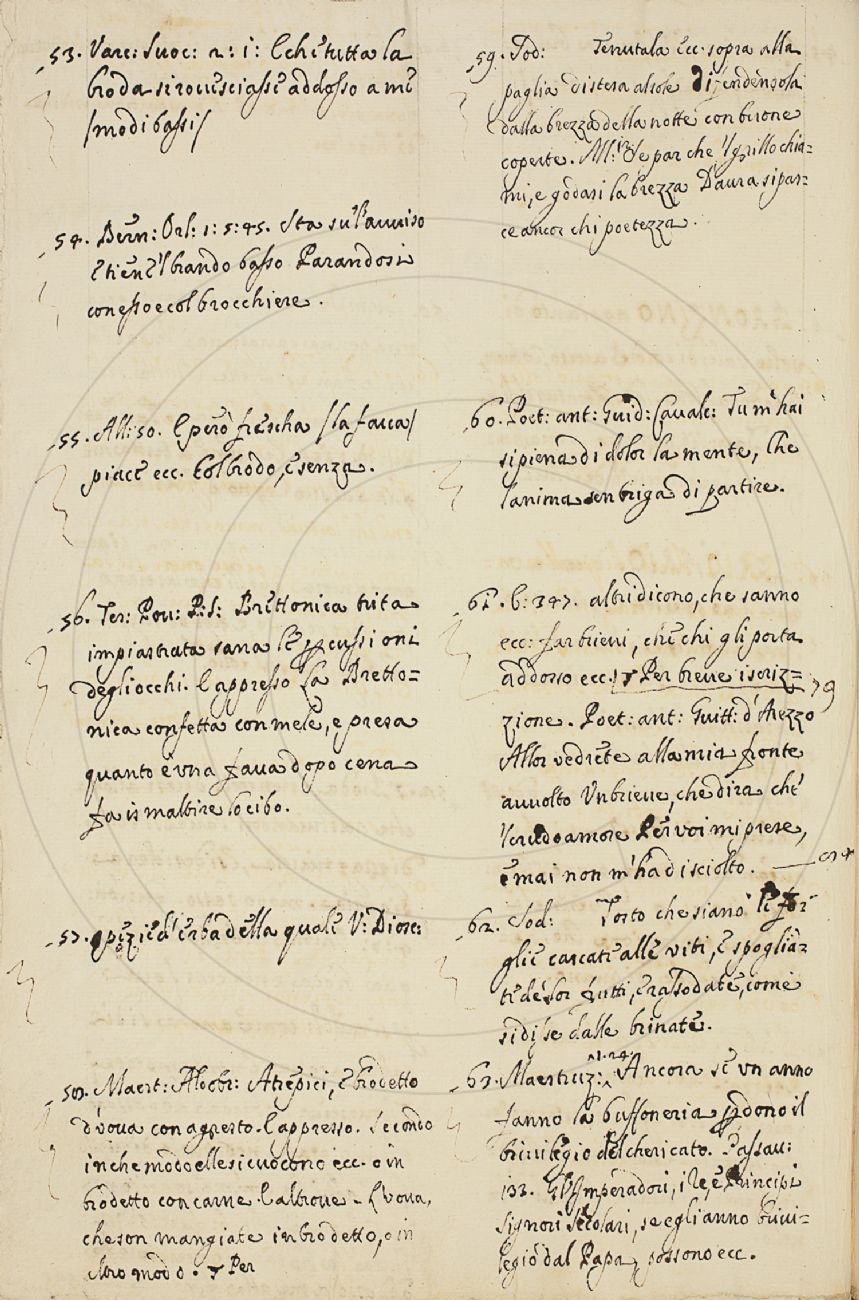 53. Varc: Suoc: 2: 1: E che tutta la
broda si rovesciasse addosso a me
/modi bassi/
54. Bern: Orl: 1: 5: 45. Sta su l'avviso
E tien 'l brando basso Parandosi
con esso e col brocchiere.
55. All: 50. E però fiescha /la fava/
piace ecc. Col brodo, e senza.
56. Tes: Pov: P: S: Brettonica trita
impiastrata sana le percussioni
degli occhi. E appresso la Bretto=
nica confetta con mele, e presa
quanto è una fava dopo cena
fa ismaltire lo cibo.
57. spezie d'erba della quale V: Diosc:
58. Maest: Aldobr: Atrepici, e brodetto
d'vova con agresto. E appresso. Secondo
in che modo elle si cuocono ecc. o in
brodetto con carne. E altrove - L'vova,
che son mangiate in brodetto, o in
altro modo. Per
59. Sod: Tenutala ecc. sopra alla
paglia distesa al sole difendensola
dalla brezza della notte con buone
coperte. All: Ve par che 'l grillo chia=
mi, e godasi la brezza D'aura si par=
ce ancor chi poetezza.
60. Poet: ant: Guid: Cavalc: Tu m'hai
si piena di dolor la mente, Che
l'anima sen briga di partire.
61. b: 347. altri dicono, che sanno
ecc: far brievi, che chi gli porta
addosso ecc. Per breve iscriz=
zione. Poet: ant: Guitt: d'Arezzo 79
Allor vedrete alla mia fronte
avvolto Un brieve, che dirà che
'l crudo amore Per voi mi prese,
e mai non m'ha disciolto.
62. Sod: Tosto che siano le fo=
glie cascate alle viti, e spoglia=
te de' lor frutti, e rassodate, come
si disse dalle brinate.
63. Maestruz: 1.24. Ancora se un anno
fanno la buffoneria perdono il
brivilegio del chericato. Passav:
133. Gl'Imperadori, i Re, e Principi
Signori secolari, se egli anno brivi=
legio dal Papa, possono ecc.